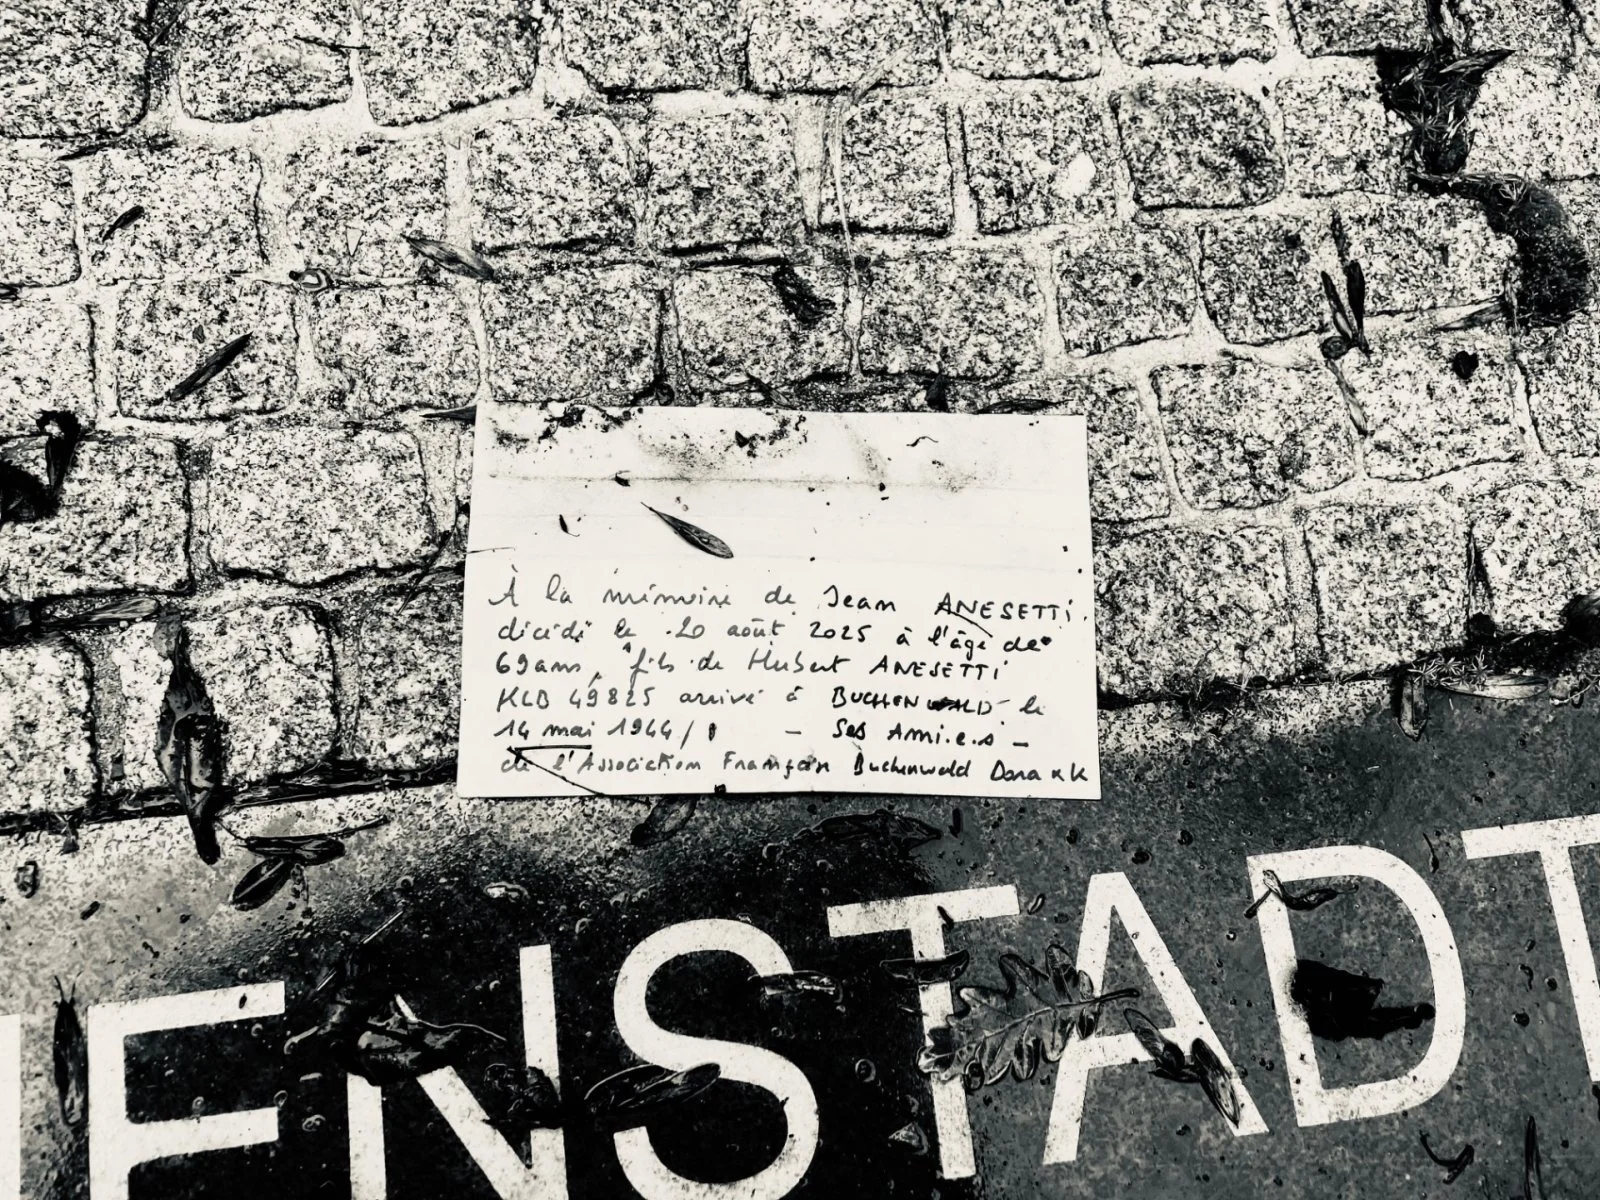 À la mémoire de Jean ANESETTI.
décédé le 20 août 2025 à l'âge de
69 ans, fils de Hubert ANESETTI
KLB 49825 arrivé à BUCHENWALD le
14 mai 1944 / - Ses Ami.e.s -
de l'Association Française Buchenwald Dora &K
ENSTADT